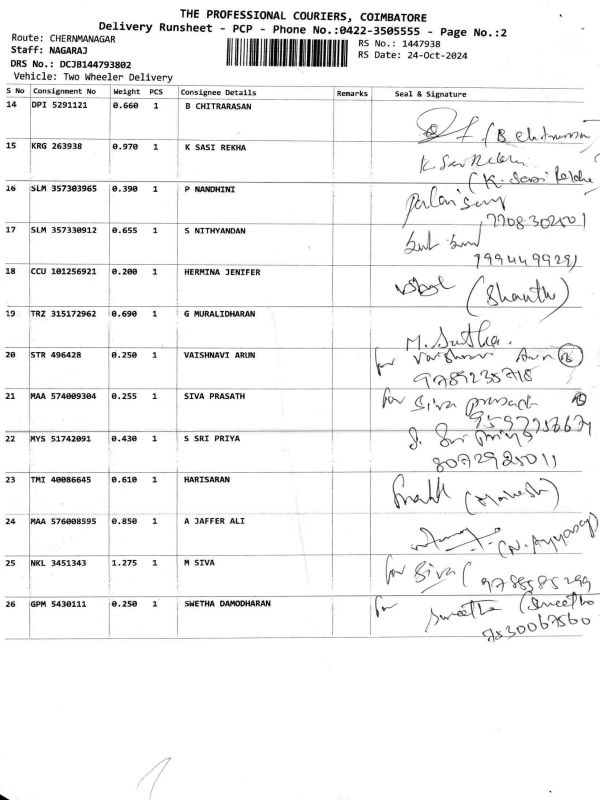 THE PROFESSIONAL COURIERS, COIMBATORE
Delivery Runsheet - PCP - Phone No.:0422-3505555 - Page No.:2
Route: CHERNMANAGAR
RS No.: 1447938
Staff: NAGARAJ
RS Date: 24-Oct-2024
DRS No.: DCJB144793802
Vehicle: Two Wheeler Delivery
S No Consignment No Weight PCS Consignee Details Remarks Seal & Signature
14 DPI 5291121 0.660 1 B CHITRARASAN
15 KRG 263938 0.970 1 K SASI REKHA
K Sasi Rekha
(K. Sasi Rekha
16 SLM 357303965 0.390 1 P NANDHINI
7708302501
17 SLM 357330912 0.655 1 S NITHYANDAN
18 CCU 101256921 0.200 1 HERMINA JENIFER
(Shanthi)
19 TRZ 315172962 0.690 1 G MURALIDHARAN
M. Sutha.
20 STR 496428 0.250 1 VAISHNAVI ARUN
for Vaishnavi Arun
9789235718
21 MAA 574009304 0.255 1 SIVA PRASATH
for Siva prasath
22 MYS 51742091 0.430 1 S SRI PRIYA
S. Sri Priya
8072925011
23 TMI 40086645 0.610 1 HARISARAN
24 MAA 576008595 0.850 1 A JAFFER ALI
25 NKL 3451343 1.275 1 M SIVA
for Siva (
26 GPM 5430111 0.250 1 SWETHA DAMODHARAN
for Swetha